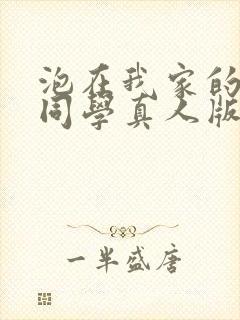 泡在我家的
同學真人版
一半盛唐